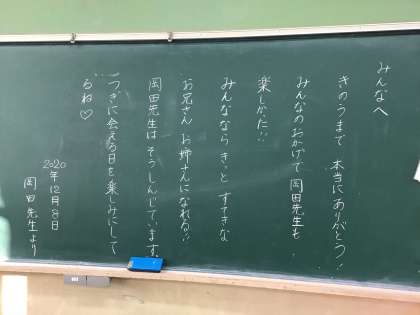 みんなへ
きのうまで 本当にありがとう!
みんなのおかげで 岡田先生も
楽しかった!!
みんななら きっと すてきな
お兄さん お姉さんになれる!!
岡田先生は そうしんじています。
つぎに会える日を楽しみにして
るね♡
2020年12月8日
岡田先生より